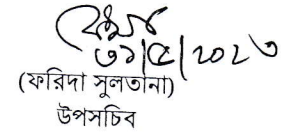 ৩১/৫/২০২৩
(ফরিদা সুলতানা)
উপসচিব